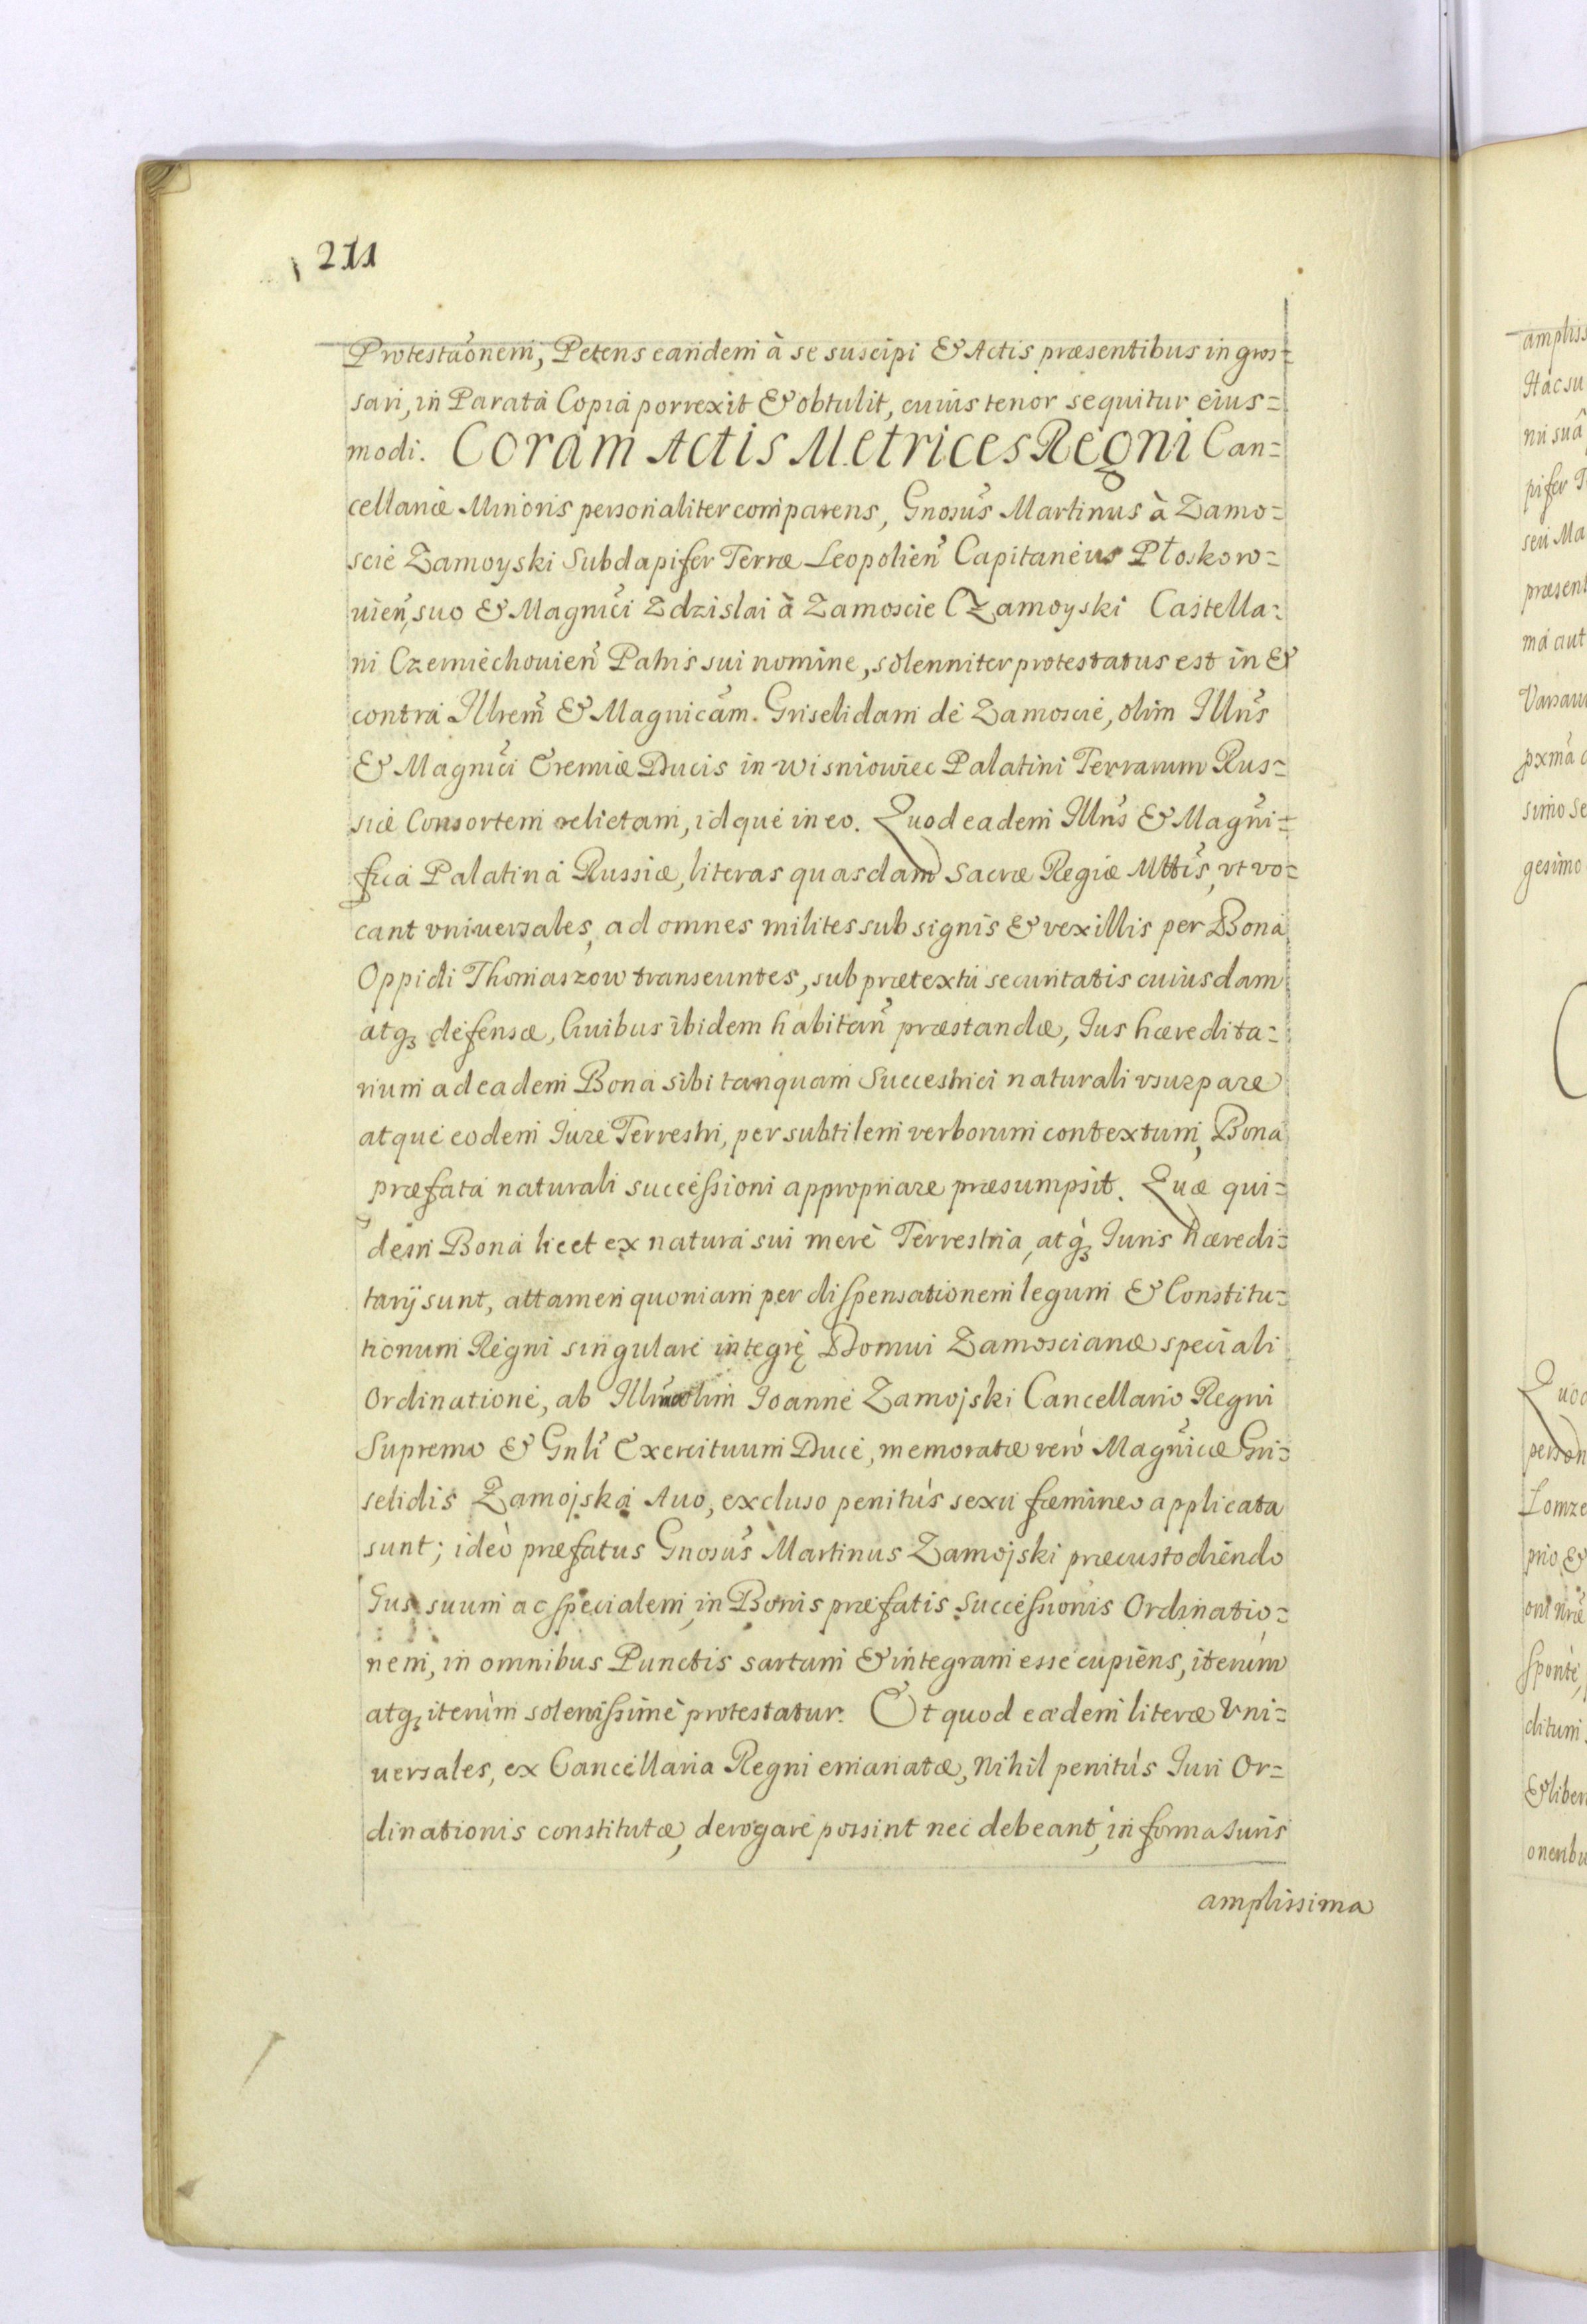 211
Protestaōnem, Petens eandem à se suscipi & Actis præsentibus in gros=
sari, in Parata Copia porrexit & obtulit, cuius tenor sequitur eius=
modi. Coram Actis Metrices Regni Can=
cellariæ Minoris personaliter comparens, Gnosus Martinus à Zamo=
scie Zamoyski Subdapifer Terræ Leopolien Capitaneus Płoskoro=
uien, suo & Magnici Zdzislai à Zamoscie Zamoyski Castella=
ni Czerniechouien Patris sui nomine, solenniter protestatus est in &
contra Illrem & Magnicam. Griselidam de Zamoscie, olim Illris
& Magnici Eremiæ Ducis in Wisniowiec Palatini Terrarum Rus=
siæ Consortem relictam, idque in eo. Quod eadem Illris & Magni=
fica Palatina Russiæ, literas quasdam Sacræ Regiæ Mttis, vt vo=
cant vniuersales, ad omnes milites sub signis & vexillis per Bona
Oppidi Thomaszow transeuntes, sub prætextu securitatis cuiusdam
atq; defensæ, Ciuibus ibidem habitan præstandæ, Ius hæredita=
rium ad eadem Bona sibi tanquam Successtrici naturali vsurpare
atque eodem Iure Terrestri, per subtilem verborum contextum, Bona
præfata naturali successioni appropriare præsumpsit. Quæ qui=
dem Bona licet ex natura sui merè Terrestria, atq; Iuris hæredi=
tarij sunt, attamen quoniam per dispensationem legum & Constitu=
tionum Regni singulare integrę Domui Zamoscianæ speciali
Ordinatione, ab olim Ioanne Zamojski Cancellario Regni
Supremo & Gnli Exercituum Duce, memoratæ verò Magnicæ Gri=
selidis Zamojska Auo, excluso penitùs sexu fæmineo applicata
sunt; ideò præfatus Gnosus Martinus Zamojski præcustodiendo
Ius suum ac specialem, in Bonis præfatis Successionis Ordinatio=
nem, in omnibus Punctis sartam & integram esse cupiens, iterùm
atq; iterùm solenissimè protestatur. Et quod eædem literæ Vni=
uersales, ex Cancellaria Regni emanatæ, Nihil penitùs Iuri Or=
dinationis constitutæ, derogare possint nec debeant, in forma Iuris
amplissima